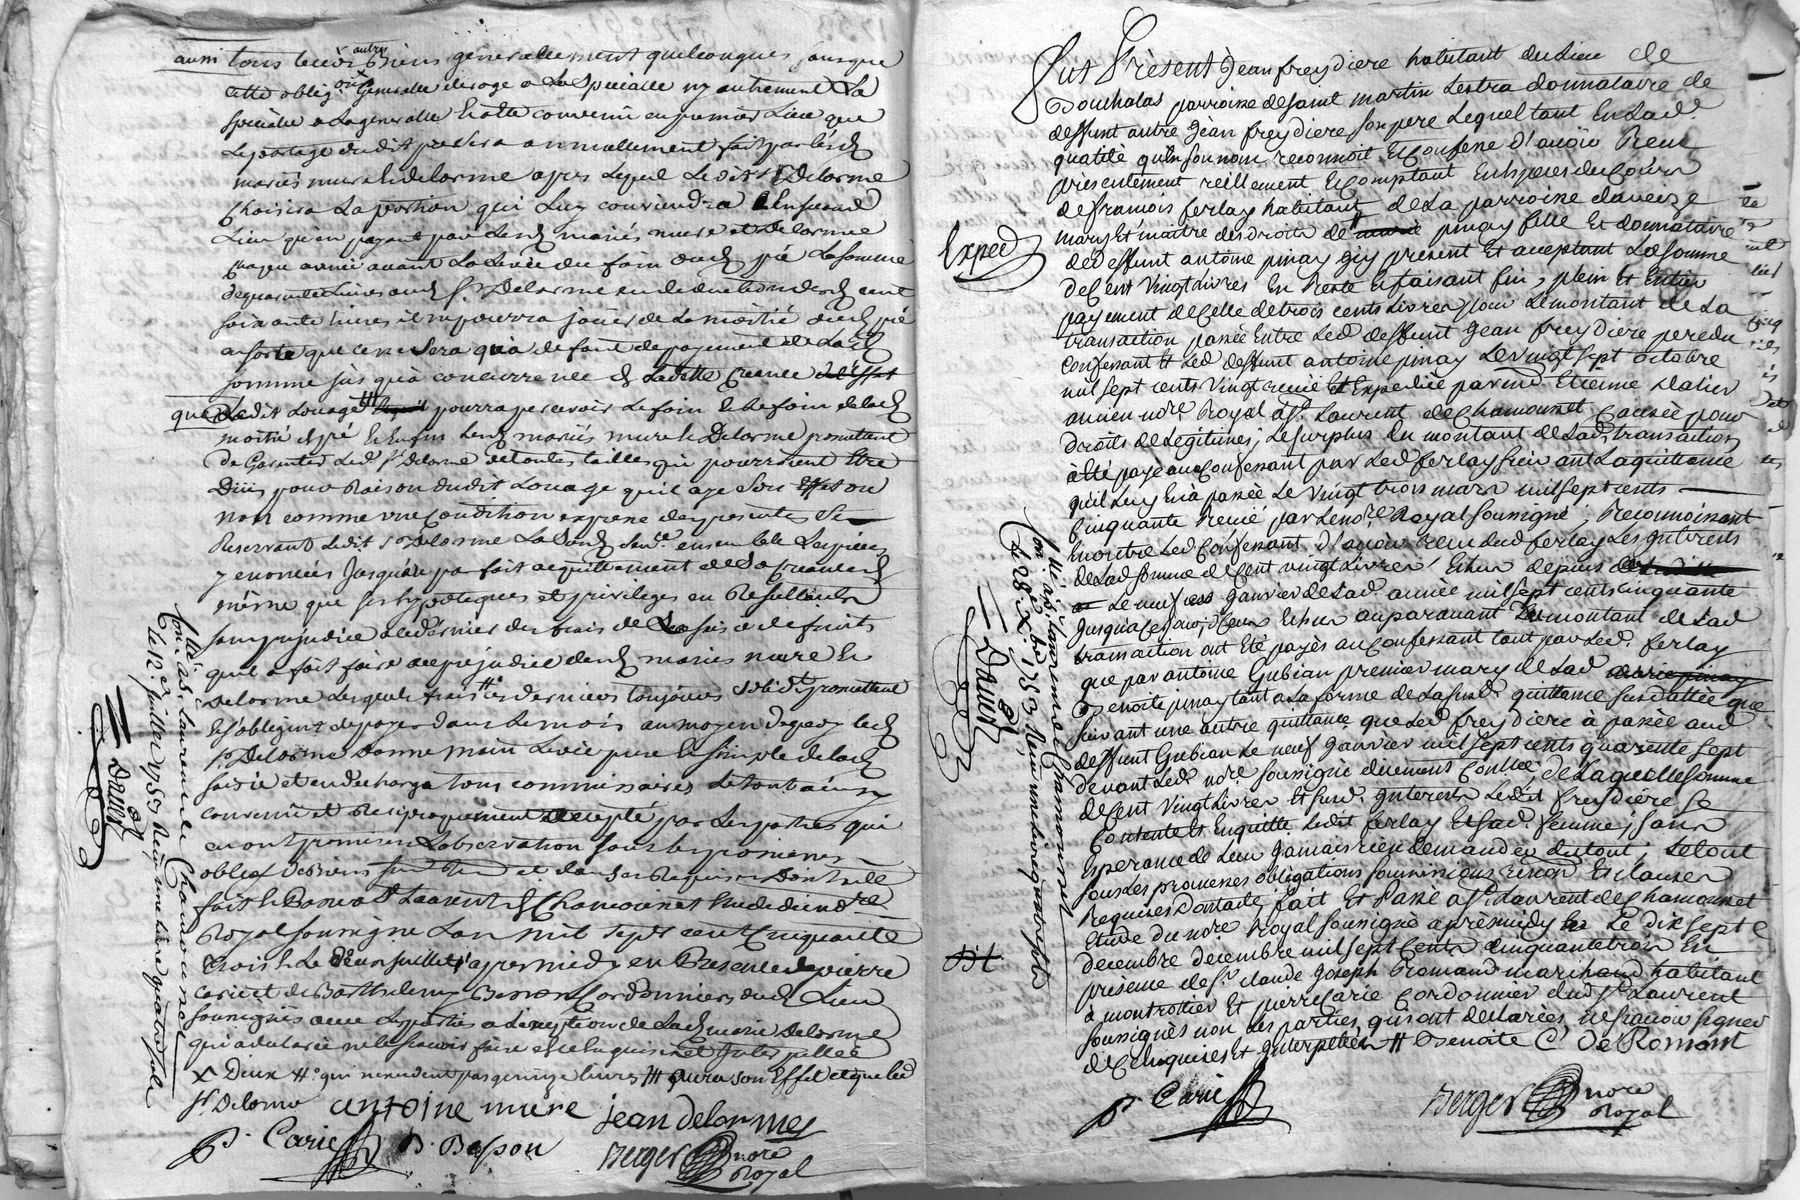 aussi tous leurs autres Biens generallement quelconques, sans que
cette oblig.on Generalle deroge a La Specialle ny autrement La
Speciale a La generalle Et a été convenû en premier Lieu que
Le partage dudit pré Sera annuellement fait par lesd
mariés mure et delorme apres Lequel Ledit Sr Delorme
Choisira La portion qui Luy conviendra Et En Second
Lieu qu'en payant par Lesd mariés mure et Delorme
chaque année avant La Levée du foin dud. pré La Somme
de quarante Livres aud Sr Delorme en deduction desd cent
soixante livres il ne pourra jouir de La moitié dud pré
en sorte que ce ne Sera qu'a defaut de payement de Lad
somme jus qu'a concurrence de Ladette Creance
que Ledit Louage pourra percevoir Le foin de lad
moitié de pré Et Enfin Lesd mariés mure et Delorme promettent
De Garentir Led Sr Delorme de toutes tailles qui pourroient Etre
Düës pour Raison dudit Louage qu'il aye Son Effet ou
non comme une Condition expresse des presentes Se
Reservant Ledit Sr Delorme ensemble Les pieces
y enoncées Jusqu'au parfait acquittement de Sa creance
même que Ses hypoteques et privileges en Resultants
sans prejudice a ce dernier des frais de La Saisie de fruits
qu'il a fait faire au prejudice desd mariés mure et
Delorme Lesquels frais ces derniers toujours solid.t promettent
Et s'obligent de payer dans Le mois au moyen de quoy led
Sr Delorme donne main Levée pure et Simple de Lad
Saisie et en decharge tous commissaires Le tout ainsy
convenû et Reciproquement accepté par Les parties qui
en ont promis L'observation Sous les peines
oblig.on de Biens Dont acte
fait et Passé a St Laurent de Chamounet Etude du no.re
Royal soussigné L'an mil sept cent Cinquante
trois Le deux juillet apres midy en Presence de pierre
carie et de Barthelemy Besson Cordonniers dud Lieu
soussignés avec Les parties a L'exception de Lad marie Delorme
qui a declaré ne le sçavoir faire de ce Enquise et Interpellée
X Deux # qui n'excedent pas quinze livres ## aura son Effet et que led
Sr Delorme
antoine mure jean delormes
P. Carie B. Besson Berger nore
Royal
Con.llé à St Laurent de Chamounet
le 12.e juillet 1753 Reçu une livre quatre sols
Dauer
Fut Présent Jean freydiere habitant du Lieu de
Bouchalas parroisse de saint martin Lestra donnataire de
deffunt autre Jean freydiere son pere Lequel tant En Lad.
qualité qu'en son nom reconnoit Et Confesse d'avoir Reçu
presentement reellement Et Comptant En Especes du Cours
de francois ferlay habitant de La parroisse d'aveize
mary Et maitre des droits de # pinay fille Et donnataire
de deffunt antoine pinay Icy present Et acceptant La Somme
de Cent Vingt Livres En Reste Et faisant fin, plein Et Entier
payement de Celle de trois cents Livres pour Le montant de La
transaction passée Entre Led. deffunt Jean freydiere pere du
Confessant Et Led deffunt antoine pinay Le vingt sept octobre
mil sept cents Vingt reçuë Et Expediée par md Etienne Dalier
ancien no.re Royal a St Laurent de Chamounet Causée pour
droits de Legitimes; Le surplus du montant de Lad transaction
à été payé au Confessant par Led ferlay suivant La quittance
qu'il Luy En a passée Le Vingt trois mars mil sept cents
Cinquante Reçuë par Le no.re Royal soussigné, Reconnoissant
En outre Led Confessant d'avoir reçu dud ferlay Les Interets
de Lad somme de Cent vingt Livres Echus depuis
Le neuf Janvier de Lad année mil sept cents Cinquante
jusqu'a Ce jour, Ceux Echus auparavant du montant de Lad
transaction ont Eté payés au Confessant tant par Led. ferlay
que par antoine Gubian premier mary de Lad
Benoite pinay tant a La forme de La susd. quittance susdattée que
suivant une autre quittance que Led freydiere à passée aud
deffunt Gubian Le neuf Janvier mil sept cents quarente sept
devant Led no.re soussigné duement Contllée; de Laquelle Somme
de Cent Vingt Livres Et susd. Interets Ledit freydiere Se
Contente Et En quitte Ledit ferlay Et Sad. femme, sans
Esperance de Leur Jamais rien demander du tout, Le tout
sous Les promesses obligations soumissions renon. Et clauses
Requises Dont acte, fait Et Passé a St Laurent de Chamounet
Etude du no.re Royal soussigné après midy Le Dix Sept
decembre mil sept Cents Cinquante trois En
presence de Sr. claude Joseph Romand marchand habitant
à montrottier Et pierre Carie Cordonnier dud St Laurent
soussignés non Les parties qui ont déclarées ne sçavoir signer
de Ce Enquises Et Interpellées # Benoite C. De Romant
P. Carie Berger nore
Royal
Exped
Con.llé à St Laurent de Chamounet
Le 28 X.bre 1753 Reçu une livre quatre sols
Dauer